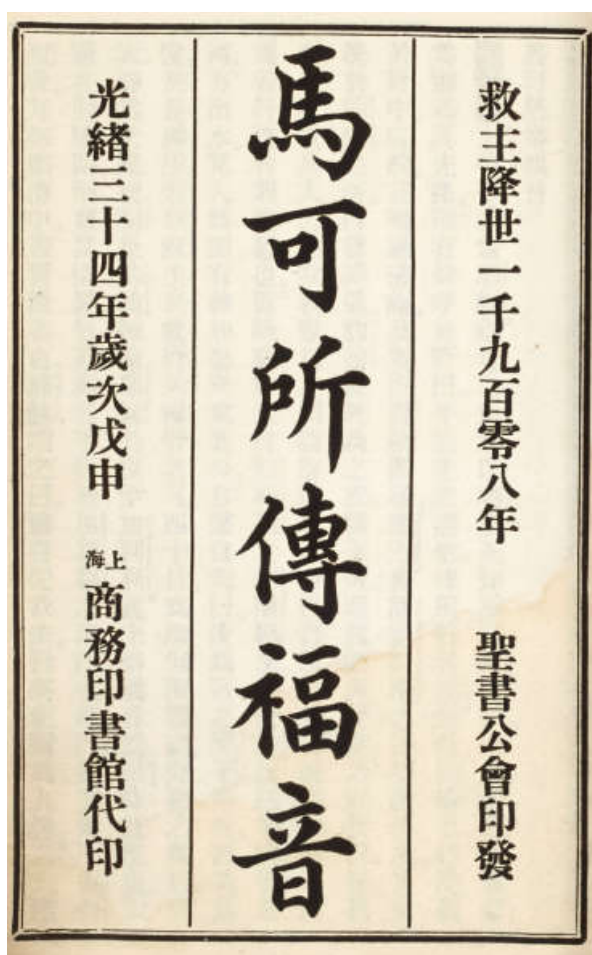 救主降世一千九百零八年　聖書公會印發
馬可所傳福音
光緒三十四年歲次戊申　上海商務印書館代印